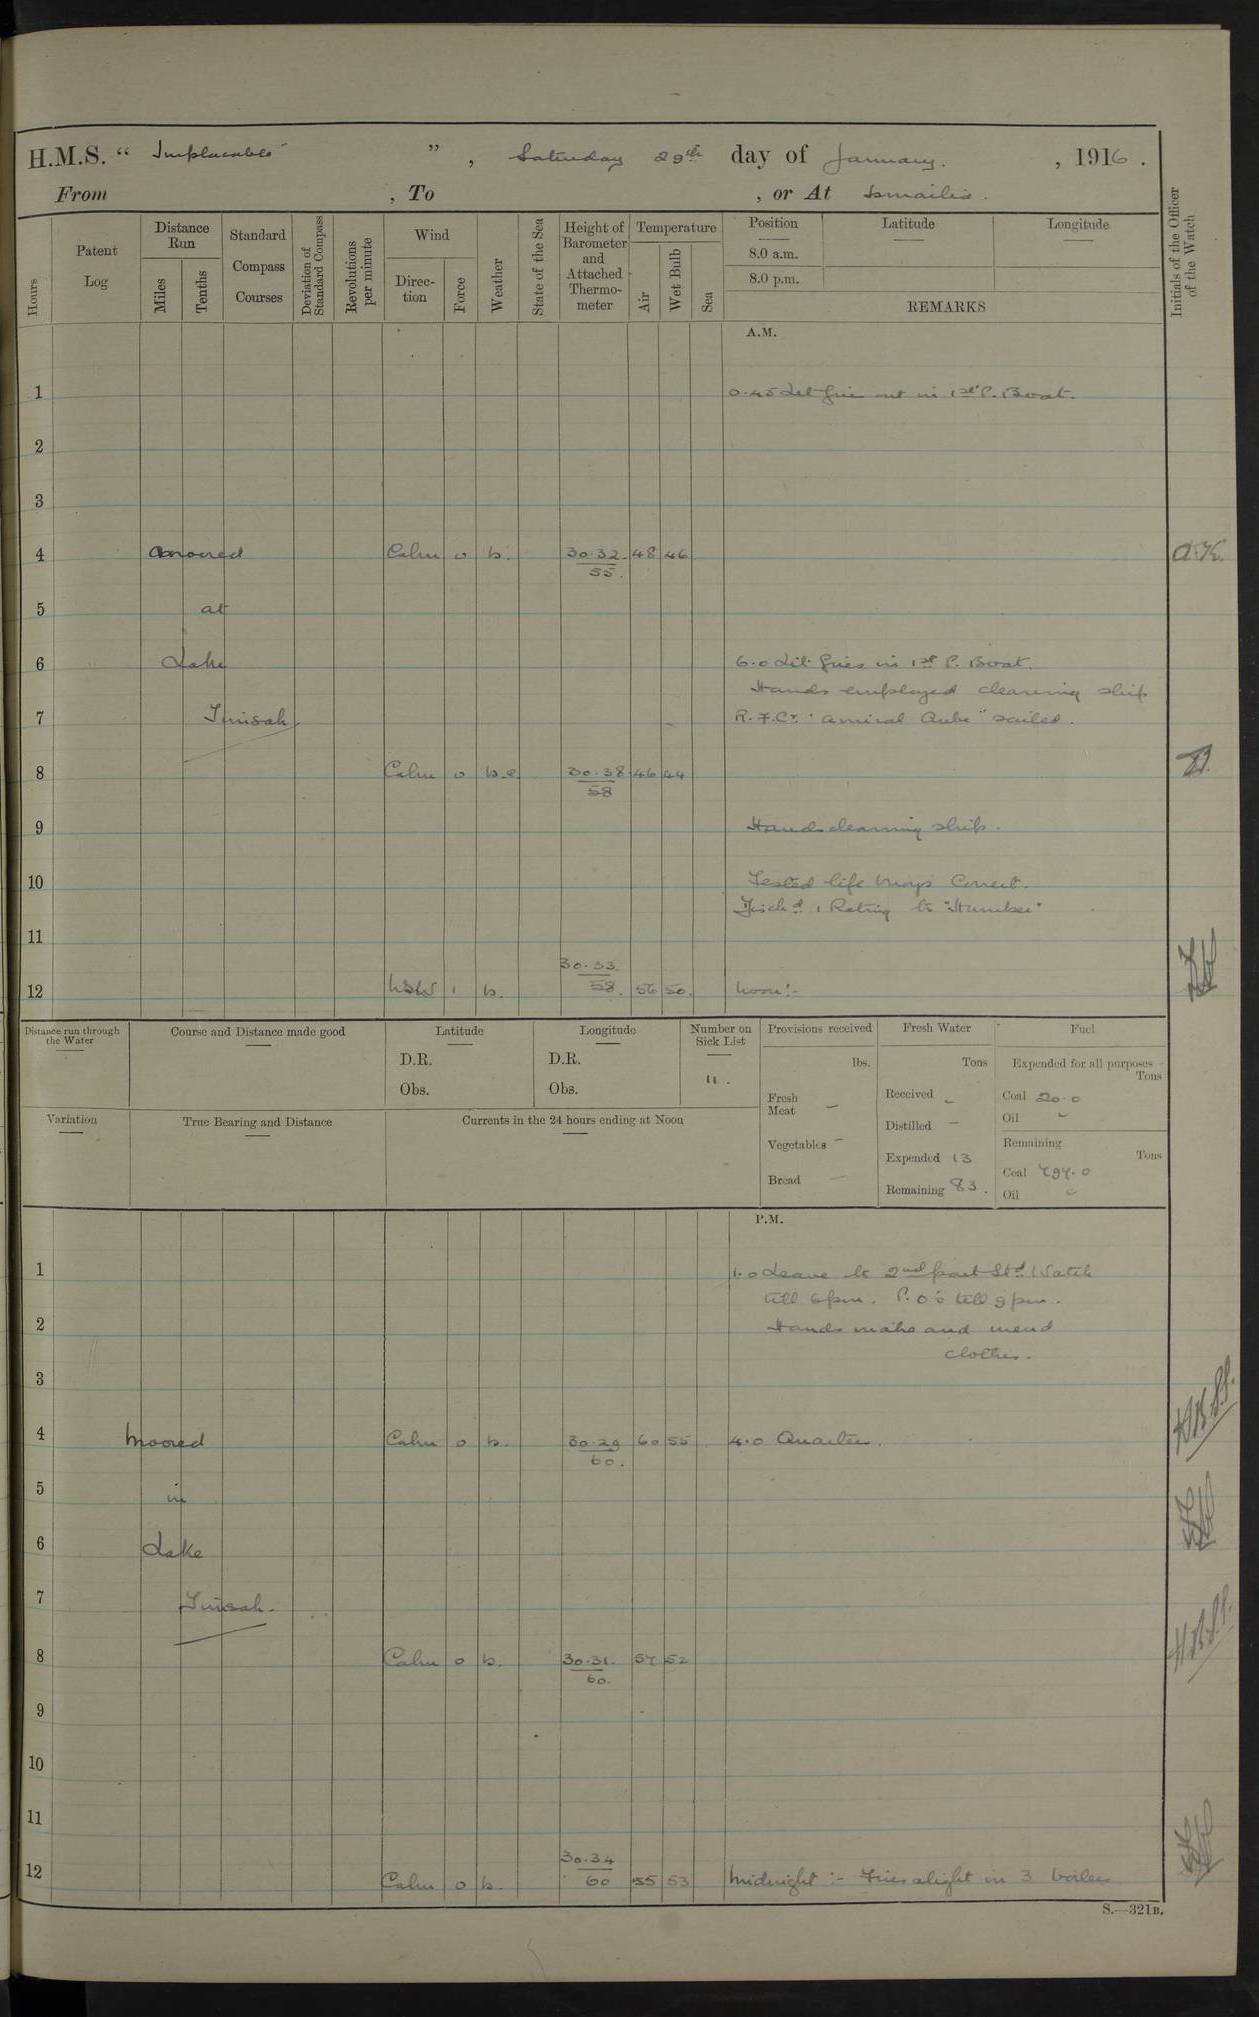 H.M.S. “ Implacable ” , Saturday 29th day of January. , 1916 .
From , To , or At Ismailia .
Hours
Patent Log
Distance Run
Miles
Tenths
Standard Compass Courses
Deviation of Standard Compass
Revolutions per minute
Wind
Direction
Force
Weather
State of the Sea
Height of Barometer and Attached Thermometer
Temperature
Air
Wet Bulb
Sea
Position
8.0 a.m.
8.0 p.m.
Latitude
Longitude
REMARKS
Initials of the Officer of the Watch
A.M.
1 0.45 Let fire out in 1st P. Boat.
2
3
4 moored Calm 0 b. 30.32 48 46
55.
5 at
6 Lake 6.0 Lit fires in 1st P. Boat.
Hands employed cleaning ship
7 Timsah R.F.Cr. "Amiral Aube" sailed.
8 Calm 0 b.c. 30.38 46 44
58
9 Hands cleaning ship.
10 Tested life buoys Correct.
Disch'd 1 Rating to "Humber"
11
30.33
12 WSW 1 b. 58. 56 50. Noon:-
Distance run through the Water
Course and Distance made good
Latitude
D.R.
Obs.
Longitude
D.R.
Obs.
Number on Sick List
11.
Provisions received
lbs.
Fresh Meat —
Vegetables —
Bread —
Fresh Water
Tons
Received -
Distilled —
Expended 13
Remaining 83.
Fuel
Expended for all purposes
Tons
Coal 20.0
Oil -
Remaining
Tons
Coal 797.0
Oil -
Variation
True Bearing and Distance
Currents in the 24 hours ending at Noon
P.M.
1 1.0 Leave to 2nd part Stbd Watch
till 6pm. P.O's till 9pm.
2 Hands make and mend
clothes.
3
4 Moored Calm 0 b. 30.29 60 55 4.0 Quarters.
60.
5 in
6 Lake
7 Timsah.
8 Calm 0 b. 30.31. 57 52
60.
9
10
11
30.34
12 Calm 0 b. 60 55 53 Midnight :- Fires alight in 3 boilers
S.—321B.